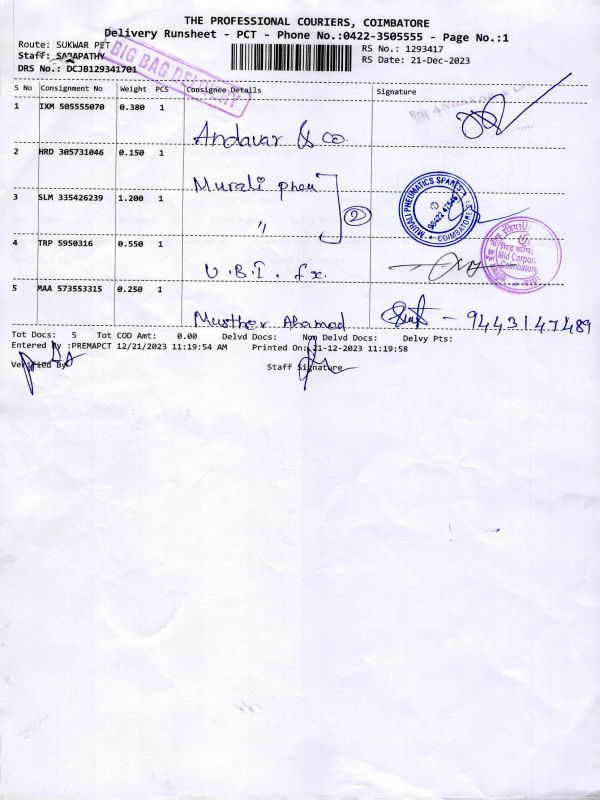 THE PROFESSIONAL COURIERS, COIMBATORE
Delivery Runsheet - PCT - Phone No.:0422-3505555 - Page No.:1
Route: SUKWAR PET
RS No.: 1293417
Staff: SABAPATHY
RS Date: 21-Dec-2023
DRS No.: DCJB129341701
BIG BAG DELIVERY
S No Consignment No Weight PCS Consignee Details Signature
1 IXM 505555070 0.380 1
Andavar & co
2 HRD 305731046 0.150 1
Murali pneu
3 SLM 335426239 1.200 1
" 2
MURALI PNEUMATICS SPARES
COIMBATORE
4 TRP 5950316 0.550 1
U.B.I. fx.
Mid Corpor.
Coimbatore
5 MAA 573553315 0.250 1
Musther Ahamed - 9443147489
Tot Docs: 5 Tot COD Amt: 0.00 Delvd Docs: Non Delvd Docs: Delvy Pts:
Entered By :PREMAPCT 12/21/2023 11:19:54 AM Printed On:21-12-2023 11:19:58
Verified By Staff Signature